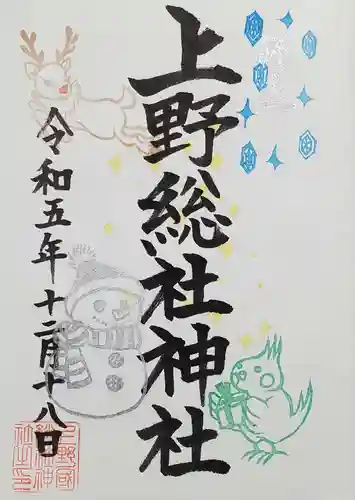 上野総社神社
令和五年十二月十八日
上野國
総社神
社之印